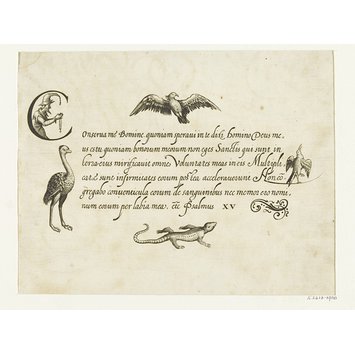 Conserva mē Domine quoniam speraui in te dixi homino Deus me,
us es tu quoniam bonorum meorum non eges Sanctis qui sunt in
terra eius mirificauit omnes Voluntates meas in eis Multipli,
catæ sunt infirmitates eorum postea accelerauerunt Non cō,
gregabo conuenticula eorum de sanguinibus nec memor ero nomi,
num eorum per labia mea. etc Psalmus XV